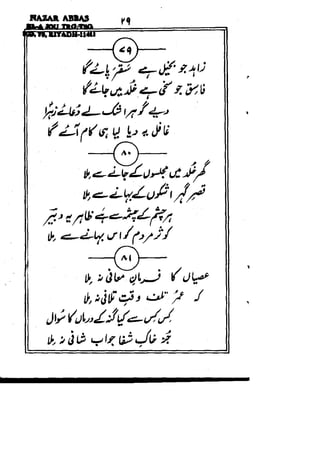 NAZAR ABBAS
۲۹
۷۹
زاہد جو بخیل ہے سقر پائے گا
فاسق جو سخی ہے خلد میں جائے گا
دے گوہر اشک لے دعائے زہرا
غافل یہ دیا لیا ہی کام آئے گا
۸۰
گھر خلد میں مجلسوں کے جانے سے ملا
قصر گہر اشکوں کے بہانے سے ملا
ہر چشم کے چشمے سے ہے ظاہر یہ دبیر
کوثر مردم کو اس بہانے سے ملا
۸۱
عصیاں کا فرمان معافی نہ ملا
کی عمر تلف وقت تلافی نہ ملا
کس کس سے کیا گنہ کے درماں کا سوال
جز خاک شفا جواب شافی نہ ملا